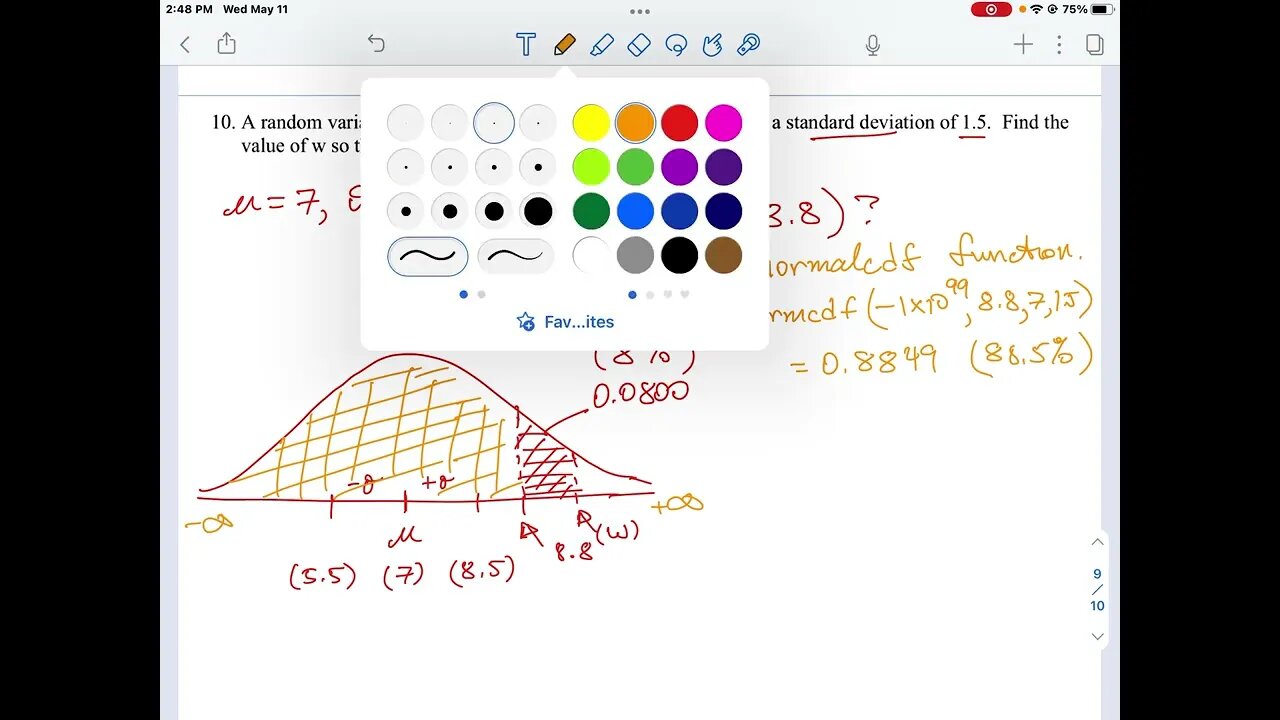 2:48 PM Wed May 11
75%
10. A random varia
a standard deviation of 1.5. Find the
value of w so t
μ = 7,
3.8) ?
normalcdf function.
rmcdf (-1×10^99, 8.8, 7, 1.5)
= 0.8849 (88.5%)
Fav...ites
(8%)
0.0800
-σ +σ
-∞ +∞
μ
8.8 (w)
(5.5) (7) (8.5)
9
/
10